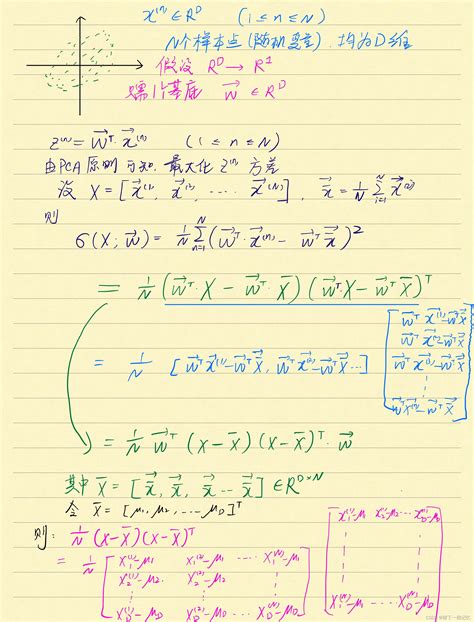 x⁽ⁿ⁾ ∈ R^D (1 ≤ n ≤ N)
N个样本点(随机变量),均为D维
假设 R^D → R^1
需1个基底 w⃗ ∈ R^D
z⁽ⁿ⁾ = w⃗ᵀ · x⃗⁽ⁿ⁾ (1 ≤ n ≤ N)
由PCA原则可知,最大化 z⁽ⁿ⁾ 方差
设 X = [x⃗⁽¹⁾, x⃗⁽²⁾, ···· x⃗⁽ᴺ⁾], x̄⃗ = 1/N Σ_{i=1}^{N} x⃗⁽ⁱ⁾
则
σ(X; w⃗) = 1/N Σ_{n=1}^{N} (w⃗ᵀ · x⃗⁽ⁿ⁾ − w⃗ᵀ x̄⃗)²
= 1/N (w⃗ᵀ · X − w⃗ᵀ · X̄)(w⃗ᵀ · X − w⃗ᵀ X̄)ᵀ
= 1/N [w⃗ᵀ x⃗⁽¹⁾ − w⃗ᵀ x̄⃗, w⃗ᵀ x⃗⁽²⁾ − w⃗ᵀ x̄⃗ ...]
[w⃗ᵀ x⃗⁽¹⁾ − w⃗ᵀ x̄⃗
w⃗ᵀ x⃗⁽²⁾ − w⃗ᵀ x̄⃗
w⃗ᵀ x⃗⁽³⁾ − w⃗ᵀ x̄⃗
⋮
w⃗ᵀ x⃗⁽ᴺ⁾ − w⃗ᵀ x̄⃗]
= 1/N w⃗ᵀ (X − X̄)(X − X̄)ᵀ · w⃗
其中 X̄ = [x̄⃗, x̄⃗, x̄⃗ ... x̄⃗] ∈ R^{D×N}
令 x̄ = [μ₁, μ₂, ... μ_D]ᵀ
则: 1/N (X − X̄)(X − X̄)ᵀ
= 1/N [x₁⁽¹⁾ − μ₁ x₁⁽²⁾ − μ₁ ···· x₁⁽ᴺ⁾ − μ₁
x₂⁽¹⁾ − μ₂ x₂⁽²⁾ − μ₂ ···· x₂⁽ᴺ⁾ − μ₂
⋮ ⋮ ⋮
x_D⁽¹⁾ − μ_D x_D⁽²⁾ − μ_D ···· x_D⁽ᴺ⁾ − μ_D]
[x₁⁽¹⁾ − μ₁ x₂⁽¹⁾ − μ₂ ··· x_D⁽¹⁾ − μ_D
⋮ ⋮
x₁⁽ᴺ⁾ − μ₁ ···· x_D⁽ᴺ⁾ − μ_D]